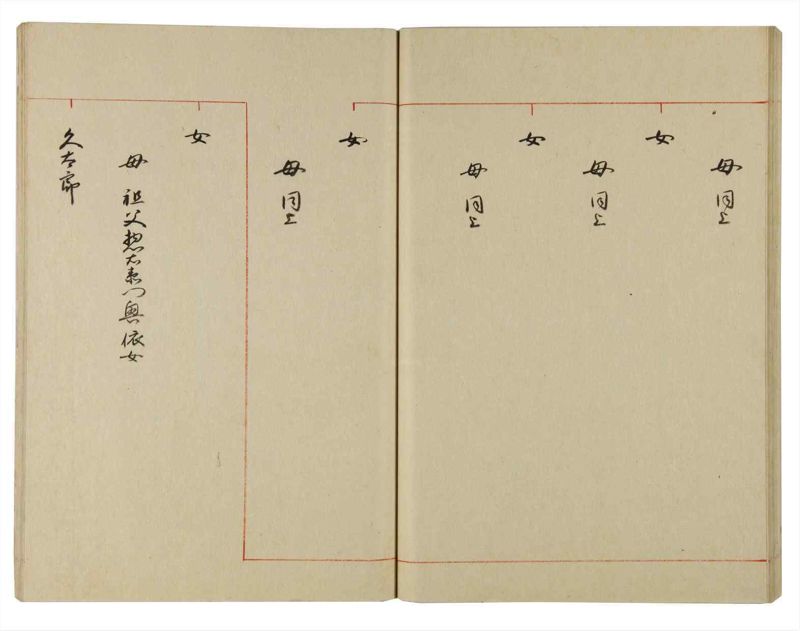 母同上
女
母同上
女
母同上
女
母同上
女
母 祖父惣右衛門興依女
久太郎